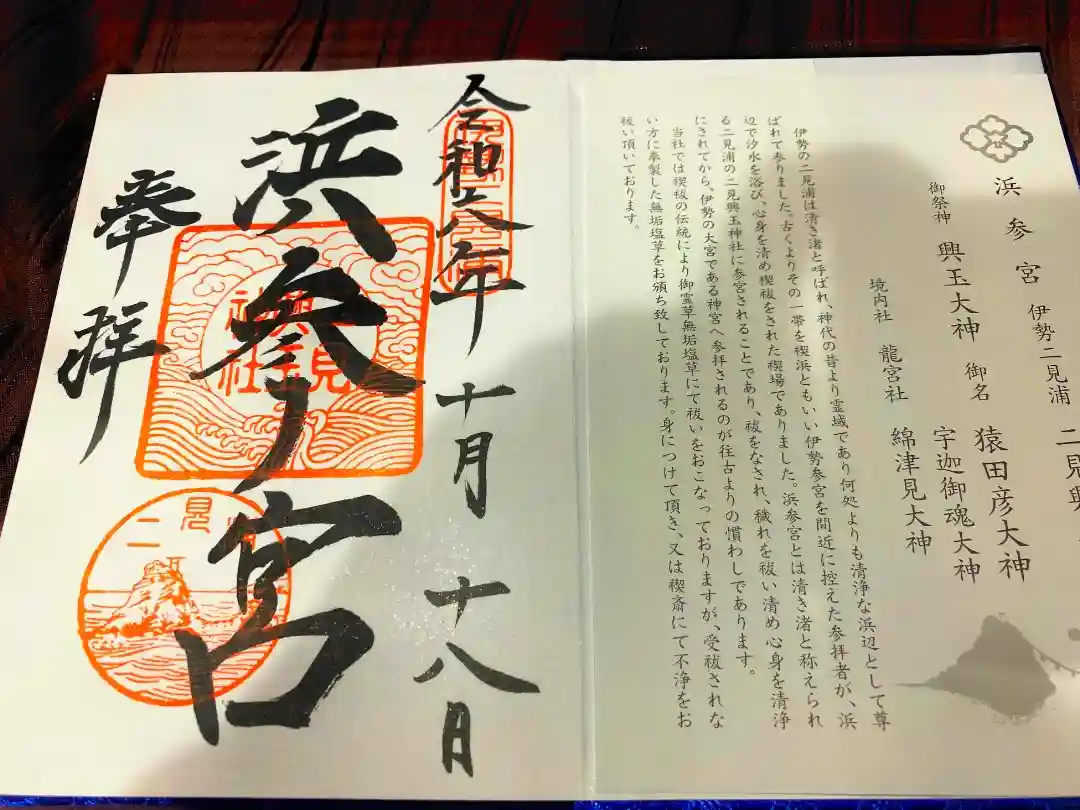 浜参宮 伊勢二見浦 二見興
御祭神 興玉大神 御名 猿田彦大神
宇迦御魂大神
境内社 龍宮社 綿津見大神
伊勢の二見浦は清き渚と呼ばれ、神代の昔より霊域であり何処よりも清浄な浜辺として尊
ばれて参りました。古くよりその一帯を禊浜ともいい伊勢参宮を間近に控えた参拝者が、浜
辺で汐水を浴び、心身を清め禊祓をされた禊場でありました。浜参宮とは清き渚と称えられ
る二見浦の二見興玉神社に参宮されることであり、祓をなされ、穢れを祓い清め心身を清浄
にされてから、伊勢の大宮である神宮へ参拝されるのが往古よりの慣わしであります。
当社では禊祓の伝統により御霊草無垢塩草にて祓いをおこなっておりますが、受祓されな
い方に奉製した無垢塩草をお頒ち致しております。身につけて頂き、又は禊斎にて不浄をお
祓い頂いております。
令和六年 十月 十八日
浜参ノ宮
二見興玉神社
二見浦
奉拝